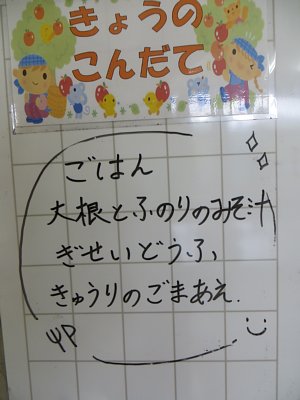 きょうの
こんだて
ごはん
大根とふのりのみそ汁
ぎせいどうふ、
きゅうりのごまあえ.